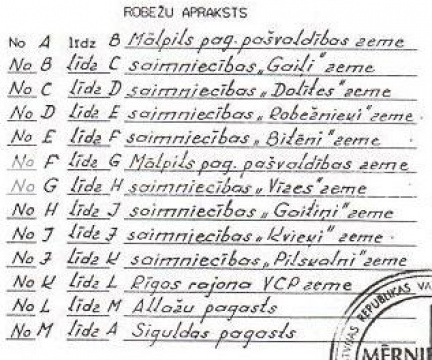 ROBEŽU APRAKSTS
No A līdz B Mālpils pag. pašvaldības zeme
No B līdz C saimniecības „Gaiļi" zeme
No C līdz D saimniecības „Dolītes" zeme
No D līdz E saimniecības „Robežnieki" zeme.
No E līdz F saimniecības „Bitēni" zeme
No F līdz G Mālpils pag. pašvaldības zeme
No G līdz H saimniecības „Vizes" zeme
No H līdz I saimniecības „Gaitiņi" zeme
No I līdz J saimniecības „Kvieķi" zeme.
No J līdz K saimniecības „Pilskalni" zeme
No K līdz L Rīgas rajona VCP zeme
No L līdz M Allažu pagasts
No M līdz A Siguldas pagasts
REPUBLIKAS VA
MĒRNIE